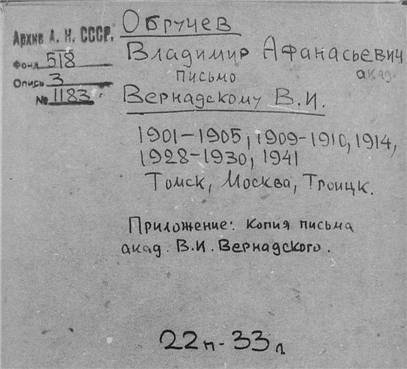 Архив А. Н. СССР.
Фонд 518
Опись 3
№ 1183
Обручев
Владимир Афанасьевич
акад.
письмо
Вернадскому В.И.
1901-1905, 1909-1910, 1914,
1928-1930, 1941
Томск, Москва, Троицк.
Приложение: копия письма
акад. В.И. Вернадского.
22п-33л